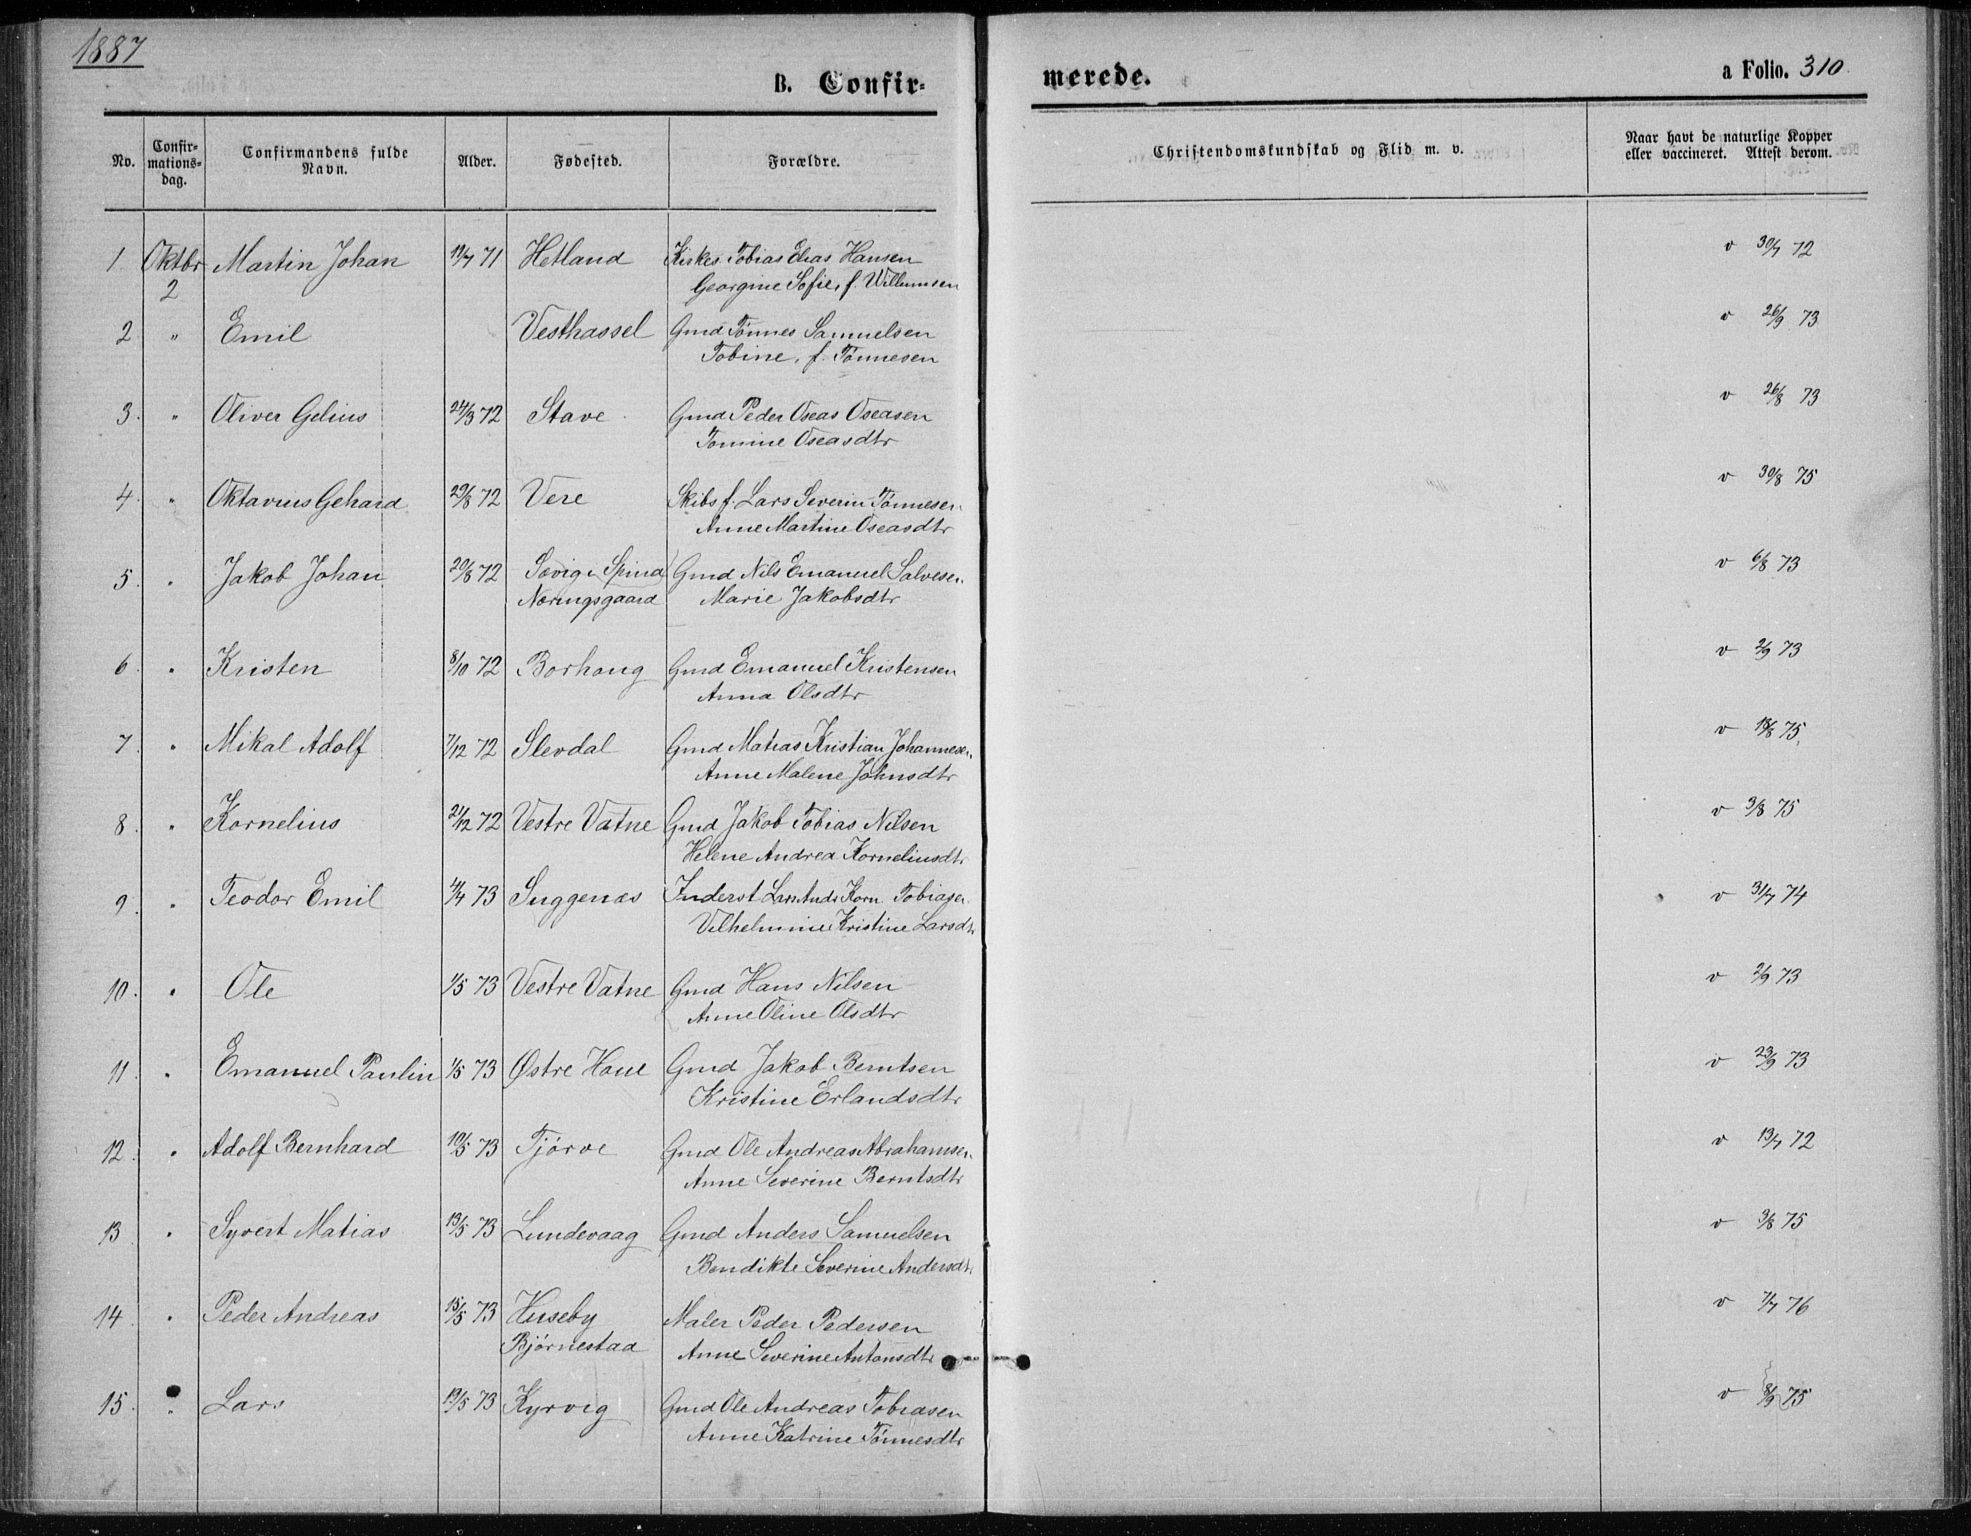 1887
B. Confir-
merede.
a Folio. 310.
No.
Confir-
mations-
dag.
Confirmandens fulde
Navn.
Alder.
Fødested.
Forældre.
Christendomskundskab og Flid m. v.
Naar havt de naturlige Kopper
eller vaccineret. Attest derom.
1 Oktbr Martin Johan 19/7 71 Hetland Kirkes. Tobias Elias Hansen v 30/7 72
2 Georgine Sofie, f. Willumsen
2 " Emil Vesthassel Gmd Tønnes Samuelsen v 26/9 73
Tobine, f. Tønnesen
3. " Oliver Gelius 24/3 72 Stave Gmd Peder Oseas Oseasen v 26/8 73
Tomine Oseasdtr
4. " Oktavius Gehard 29/8 72 Vere Skibsf. Lars Severin Tønnesen v 30/8 75
Anne Martine Oseasdtr
5. " Jakob Johan 20/8 72 Sævig i Spind Gmd Nils Emanuel Salvesen v 6/8 73
Næringsgaard Marie Jakobsdtr
6. " Kristen 8/10 72 Borhaug Gmd Emanuel Kristensen v 2/9 73
Anna Olsdtr
7. " Mikal Adolf 7/12 72 Slevdal Gmd Matias Kristian Johannesen v 18/8 75.
Anne Malene Johnsdtr
8. " Kornelius 21/12 72 Vestre Vatne Gmd Jakob Tobias Nilsen v 3/8 75
Helene Andrea Korneliusdtr
9. " Teodor Emil 4/4 73 Suggenæs Inderst Lars Andr. Korn. Tobiasen v 31/7 74
Vilhelmine Kristine Larsdtr
10. " Ole 1/5 73 Vestre Vatne Gmd Hans Nilsen v 2/9 73
Anne Oline Olsdtr
11. " Emanuel Paulin 1/5 73 Østre Haue Gmd Jakob Berntsen v 23/9 73
Kristine Erlandsdtr
12. " Adolf Bernhard 10/5 73 Tjørve Gmd Ole Andreas Abrahamsen v 13/7 72
Anne Severine Berntsdtr
13 " Syvert Matias 13/5 73 Lundevaag Gmd Anders Samuelsen v 3/8 75
Bendikte Severine Andersdtr
14 " Peder Andreas 15/5 73 Huseby Maler Peder Pedersen v 7/7 76
Bjørnestad Anne Severine Antonsdtr
15. " Lars 19/5 73 Kyrvig Gmd Ole Andreas Tobiasen v 8/9 75
Anne Katrine Tønnesdtr